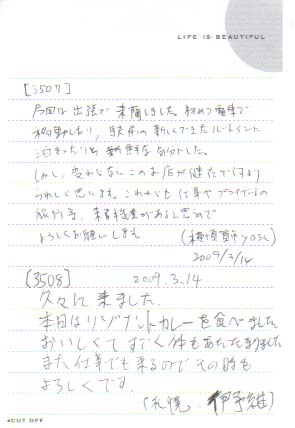 LIFE IS BEAUTIFUL
[3507]
今回は出張で来蘭しました。初めて電車で
移動したり、駅前の新しくできたルートイントに
泊まったりと新鮮な気分でした。
しかし、変わらないこのお店が健在で何より
うれしく思います。これからも仕事やプライベートの
旅行等、来る機会があると思うので
よろしくお願いします (横須賀市 yosh)
2009/3/14
[3508] 2009.3.14
久々に来ました。
本日はリゾナントカレーを食べました
おいしくてすごく体もあたたまりました
また仕事でも来るのでその時も
よろしくです。
(札幌・伊予維)
●CUT OFF